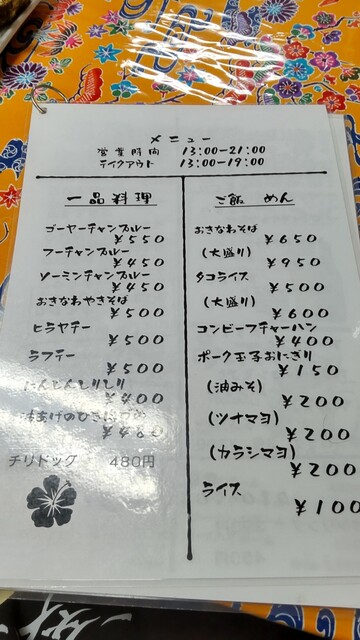 メニュー
営業時間 13:00-21:00
テイクアウト 13:00-19:00
一品料理
ゴーヤーチャンプルー
¥550
フーチャンプルー
¥450
ソーミンチャンプルー
¥450
おきなわやきそば
¥500
ヒラヤチー
¥500
ラフテー
¥500
にんじんしりしり
¥400
チリドッグ 480円
ご飯 めん
おきなわそば
¥650
(大盛り)
¥950
タコライス
¥500
(大盛り)
¥600
コンビーフチャーハン
¥400
ポーク玉子おにぎり
¥150
(油みそ)
¥200
(ツナマヨ)
¥200
(カラシマヨ)
¥200
ライス
¥100